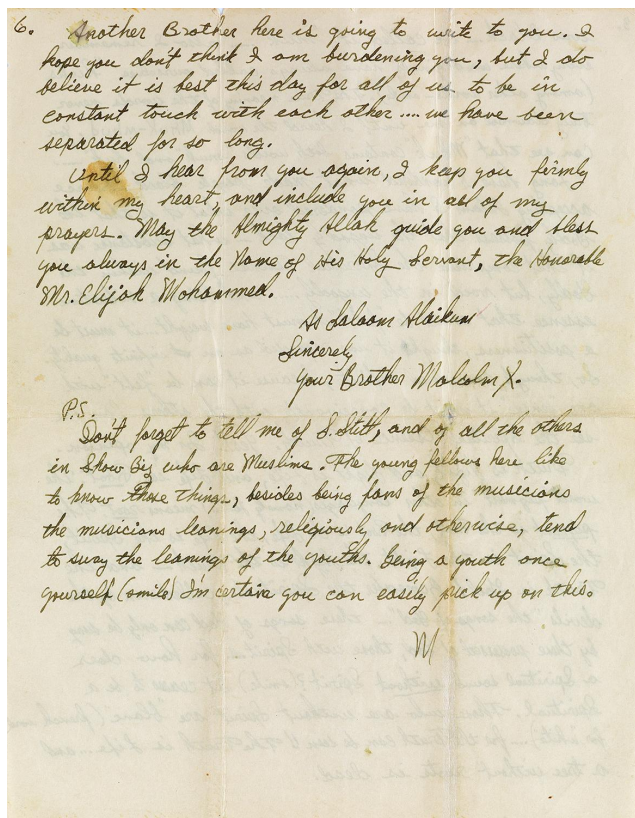 6. Another Brother here is going to write to you. I
hope you don't think I am burdening you, but I do
believe it is best this day for all of us to be in
constant touch with each other .... we have been
separated for so long.
Until I hear from you again, I keep you firmly
within my heart, and include you in all of my
prayers. May the Almighty Allah guide you and bless
you always in the Name of His Holy Servant, the Honorable
Mr. Elijah Mohammed.
As Salaam Alaikum
Sincerely
Your Brother Malcolm X.
P.S.
Don't forget to tell me of S. Stitt, and of all the others
in Show Biz who are Muslims. The young fellows here like
to know those things, besides being fans of the musicians
the musicians leanings, religiously and otherwise, tend
to sway the leanings of the youths. Being a youth once
yourself (smile) I'm certain you can easily pick up on this.
M